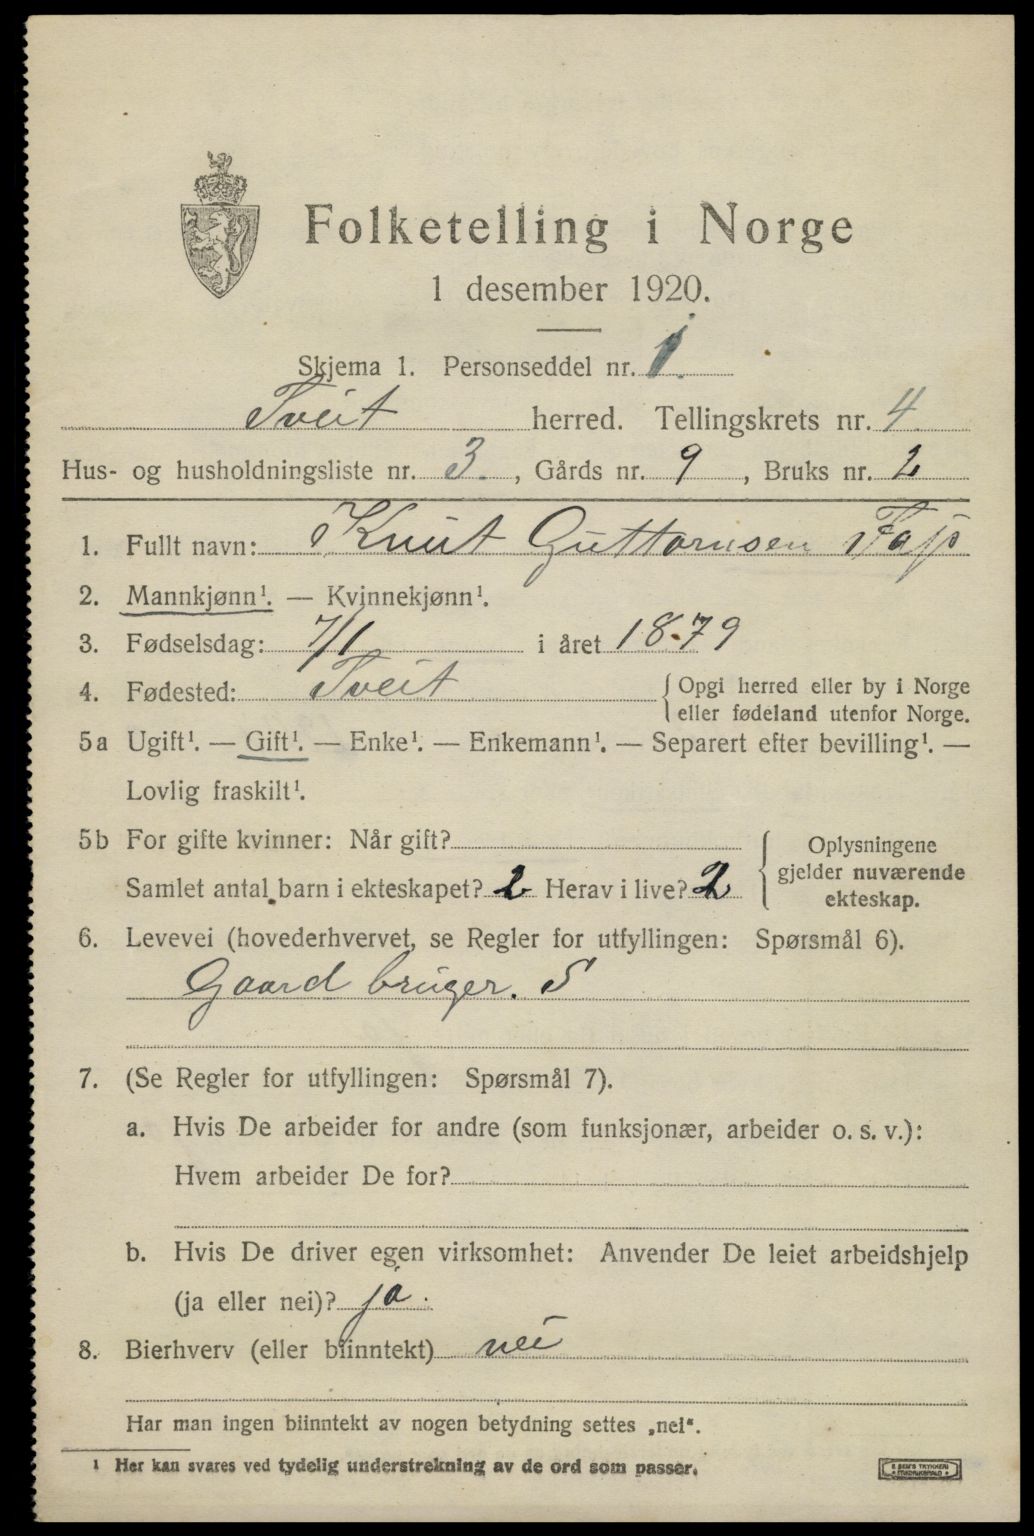 Folketelling i Norge
1 desember 1920.
Skjema 1. Personseddel nr. 1.
Tveit herred. Tellingskrets nr. 4
Hus- og husholdningsliste nr. 3. , Gårds nr. 9 , Bruks nr. 2
1. Fullt navn: Knut Guttormsen
2. Mannkjønn¹. — Kvinnekjønn¹.
3. Fødselsdag: 7/1 i året 1879
4. Fødested: Tveit { Opgi herred eller by i Norge
eller fødeland utenfor Norge.
5a Ugift¹. — Gift¹. — Enke¹. — Enkemann¹. — Separert efter bevilling¹. —
Lovlig fraskilt¹.
5b For gifte kvinner: Når gift?
Samlet antal barn i ekteskapet? 2 Herav i live? 2
{ Oplysningene
gjelder nuværende
ekteskap.
6. Levevei (hovederhvervet, se Regler for utfyllingen: Spørsmål 6).
Gaard bruger. S
7. (Se Regler for utfyllingen: Spørsmål 7).
a. Hvis De arbeider for andre (som funksjonær, arbeider o. s. v.):
Hvem arbeider De for?
b. Hvis De driver egen virksomhet: Anvender De leiet arbeidshjelp
(ja eller nei)? ja.
8. Bierhverv (eller biinntekt) nei
Har man ingen biinntekt av nogen betydning settes „nei“.
¹ Her kan svares ved tydelig understrekning av de ord som passer.
E. SEM'S TRYKKERI
FREDRIKSHALD